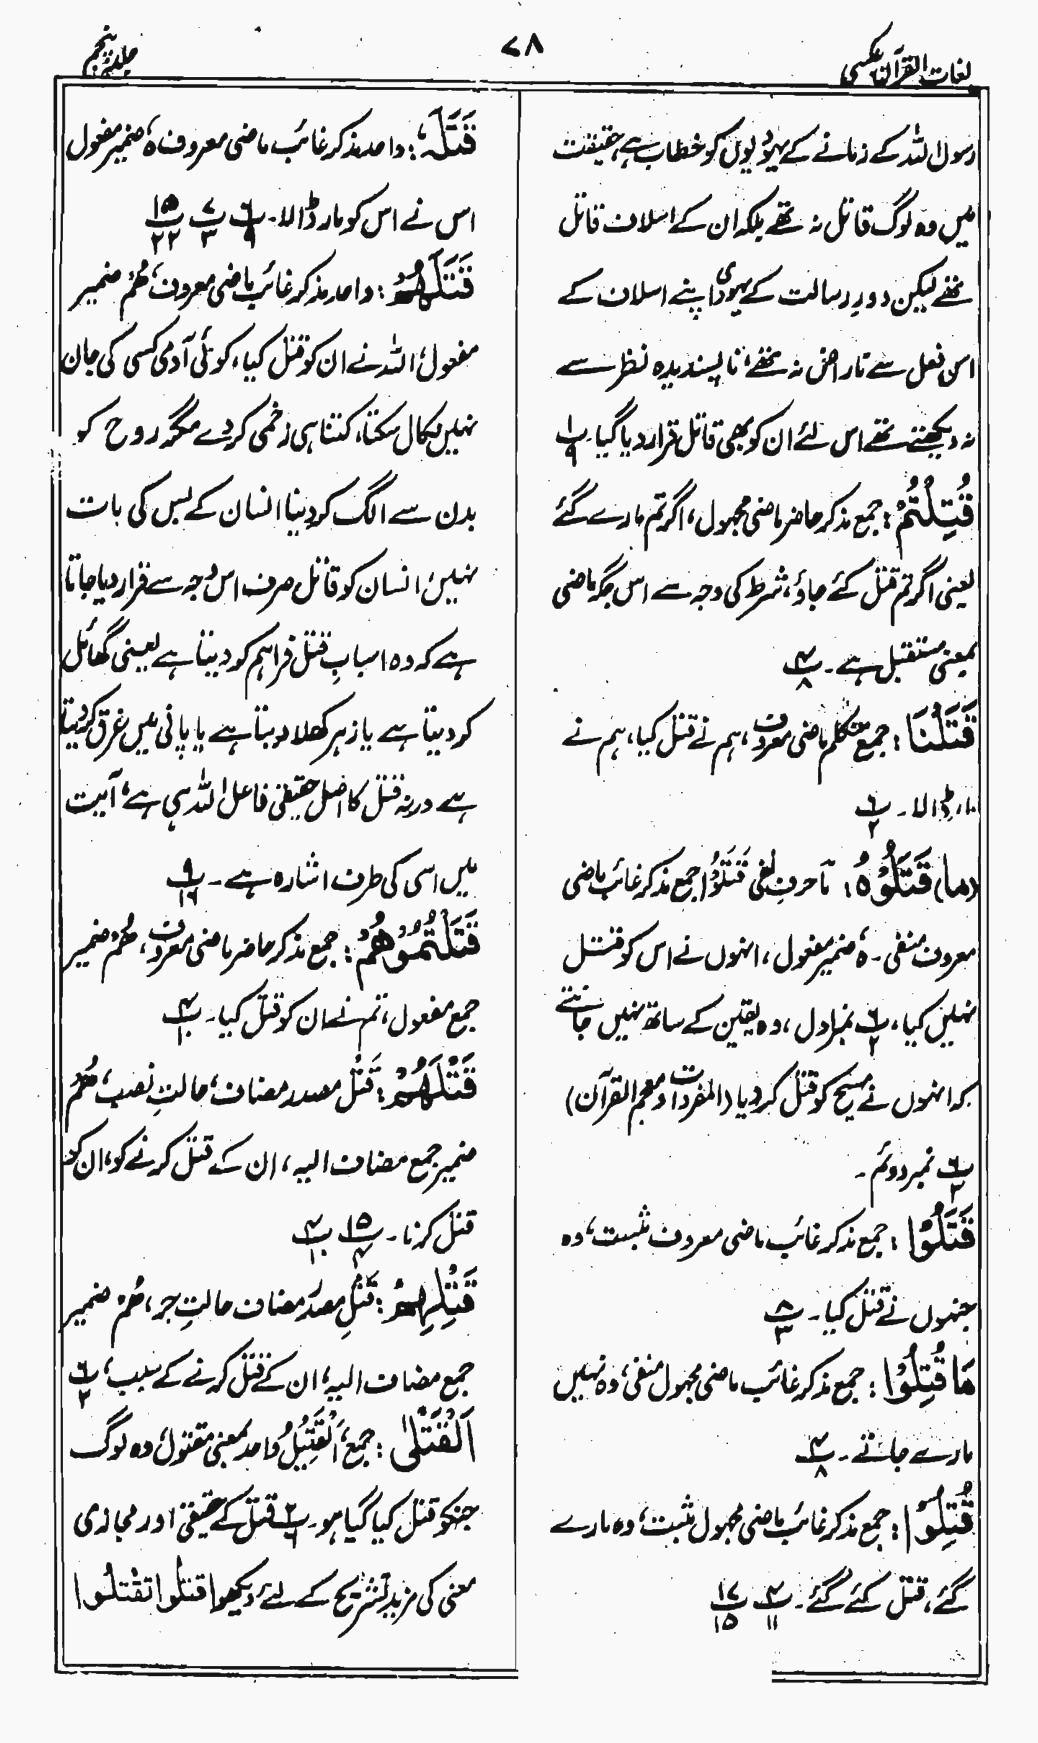 لغات القرآن عکسی
۷۸
جلد پنجم
رسول اللہ کے زمانے کے یہودیوں کو خطاب ہے، حقیقت
میں وہ لوگ قاتل نہ تھے بلکہ ان کے اسلاف قاتل
تھے لیکن دورِ رسالت کے یہودی اپنے اسلاف کے
اس فعل سے ناراض نہ تھے، ناپسندیدہ نظر سے
نہ دیکھتے تھے اس لئے ان کو بھی قاتل قرار دیا گیا۔ پ۱/۹
قُتِلْتُمْ: جمع مذکر حاضر ماضی مجہول، اگر تم مارے گئے
یعنی اگر تم قتل کئے جاؤ، شرط کی وجہ سے اس جگہ ماضی
بمعنی مستقبل ہے۔ پ۴/۸
قَتَلْنَا: جمع متکلم ماضی معروف، ہم نے قتل کیا، ہم نے
مار ڈالا۔ پ۶/۲
(ما) قَتَلُوْهُ: مَا حرفِ نفی قَتَلُوْا جمع مذکر غائب ماضی
معروف منفی۔ ہٗ ضمیر مفعول، انہوں نے اس کو قتل
نہیں کیا، پ۶/۲ نمبر اول، وہ یقین کے ساتھ نہیں جانتے
کہ انہوں نے مسیح کو قتل کر دیا (المفردات و معجم القرآن)
پ۶/۲ نمبر دوئم۔
قَتَلُوْا: جمع مذکر غائب ماضی معروف مثبت، وہ
جنہوں نے قتل کیا۔ پ۸/۳
مَا قُتِلُوْا: جمع مذکر غائب ماضی مجہول منفی، وہ نہیں
مارے جاتے۔ پ۴/۸
قُتِلُوْا: جمع مذکر غائب ماضی مجہول مثبت، وہ مارے
گئے، قتل کئے گئے۔ پ۴/۱۱ پ۱۷/۱۵
قَتَلَهٗ: واحد مذکر غائب ماضی معروف ہٗ ضمیر مفعول
اس نے اس کو مار ڈالا۔ پ۶/۹ پ۷/۳ پ۱۵/۲۲
قَتَلَهُمْ: واحد مذکر غائب ماضی معروف، ھُمْ ضمیر
مفعول، اللہ نے ان کو قتل کیا، کوئی آدمی کسی کی جان
نہیں نکال سکتا، کتنا ہی زخمی کر دے مگر روح کو
بدن سے الگ کر دینا انسان کے بس کی بات
نہیں، انسان کو قاتل صرف اس وجہ سے قرار دیا جاتا
ہے کہ وہ اسبابِ قتل فراہم کر دیتا ہے یعنی گھائل
کر دیتا ہے یا زہر کھلا دیتا ہے یا پانی میں غرق کر دیتا
ہے ورنہ قتل کا اصل حقیقی فاعل اللہ ہی ہے، آیت
میں اسی کی طرف اشارہ ہے۔ پ۹/۱۶
قَتَلْتُمُوْهُمْ: جمع مذکر حاضر ماضی معروف، ھُمْ ضمیر
جمع مفعول، تم نے ان کو قتل کیا۔ پ۴/۱۰
قَتْلَهُمْ: قَتْلَ مصدر مضاف، حالتِ نصب، ھُمْ
ضمیر جمع مضاف الیہ، ان کے قتل کرنے کو، ان کو
قتل کرنا۔ پ۱۵/۴ پ۴/۱۰
قَتْلِهِمْ: قَتْلِ مصدر مضاف حالتِ جر، ھُمْ ضمیر
جمع مضاف الیہ، ان کے قتل کرنے کے سبب، پ۶/۲
اَلْقَتْلٰی: جمع، اَلْقَتِیْلُ واحد بمعنی مقتول، وہ لوگ
جنکو قتل کیا گیا ہو۔ پ۲/۶ قتل کے حقیقی اور مجازی
معنی کی مزید تشریح کے لئے دیکھو اقتلوا تقتلوا